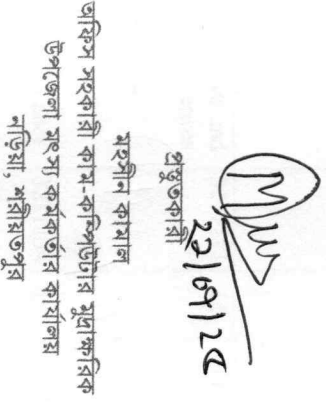 ২১/০৭/২৫
প্রস্তুতকারি
মহসীন কামাল
অফিস সহকারী কাম-কম্পিউটার মুদ্রাক্ষরিক
উপজেলা মৎস্য কর্মকর্তার কার্যালয়
নড়িয়া, শরীয়তপুর